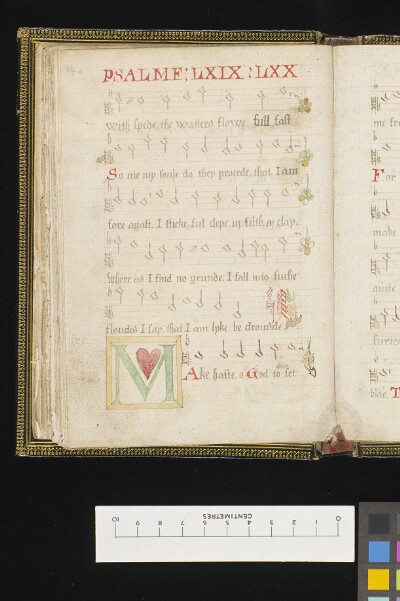 PSALME. LXIX. LXX
With spede, the watters flowe full fast
So nie my soule do they procede, that I am
sore agast. I sticke ful depe in filth & clay,
Where as I find no grunde: I fall into suche
floudes I say, that I am lyke be drounde
MAke haste o God to set
me fre
For
make
quite
furio
blie. T
CENTIMETRES
10 9 8 7 6 5 4 3 2 1 0